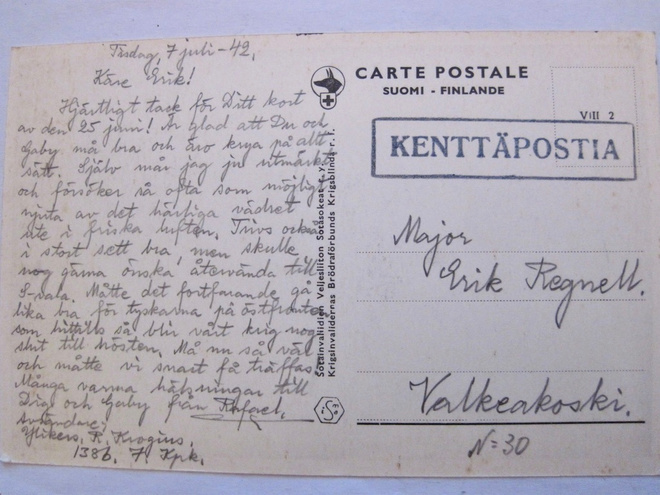 Tisdag, 7 juli -42.
Käre Erik!
Hjärtligt tack för Ditt kort
av den 25 juni! Är glad att Du och
Gaby må bra och äro krya på allt
sätt. Själv mår jag ju utmärkt
och försöker så ofta som möjligt
njuta av det härliga vädret
ute i friska luften. Trivs också
i stort sett bra, men skulle
nog gärna önska återvända till
S-vala. Måtte det fortfarande gå
lika bra för tyskarna på östfronten
som hittills så blir vårt krig nog
slut till hösten. Må nu så väl
och måtte vi snart få träffas.
Många varma hälsningar till
Dig och Gaby från Rafael.
Avsändare:
R. Krogius.
1386. 7. Kpk.
CARTE POSTALE
SUOMI - FINLANDE
VIII 2
KENTTÄPOSTIA
Major
Erik Regnell.
Valkeakoski.
N=30
Sotainvaliidien Veljesliiton Sotasokeat r. y.
Krigsinvalidernas Brödraförbunds Krigsblinda r. f.